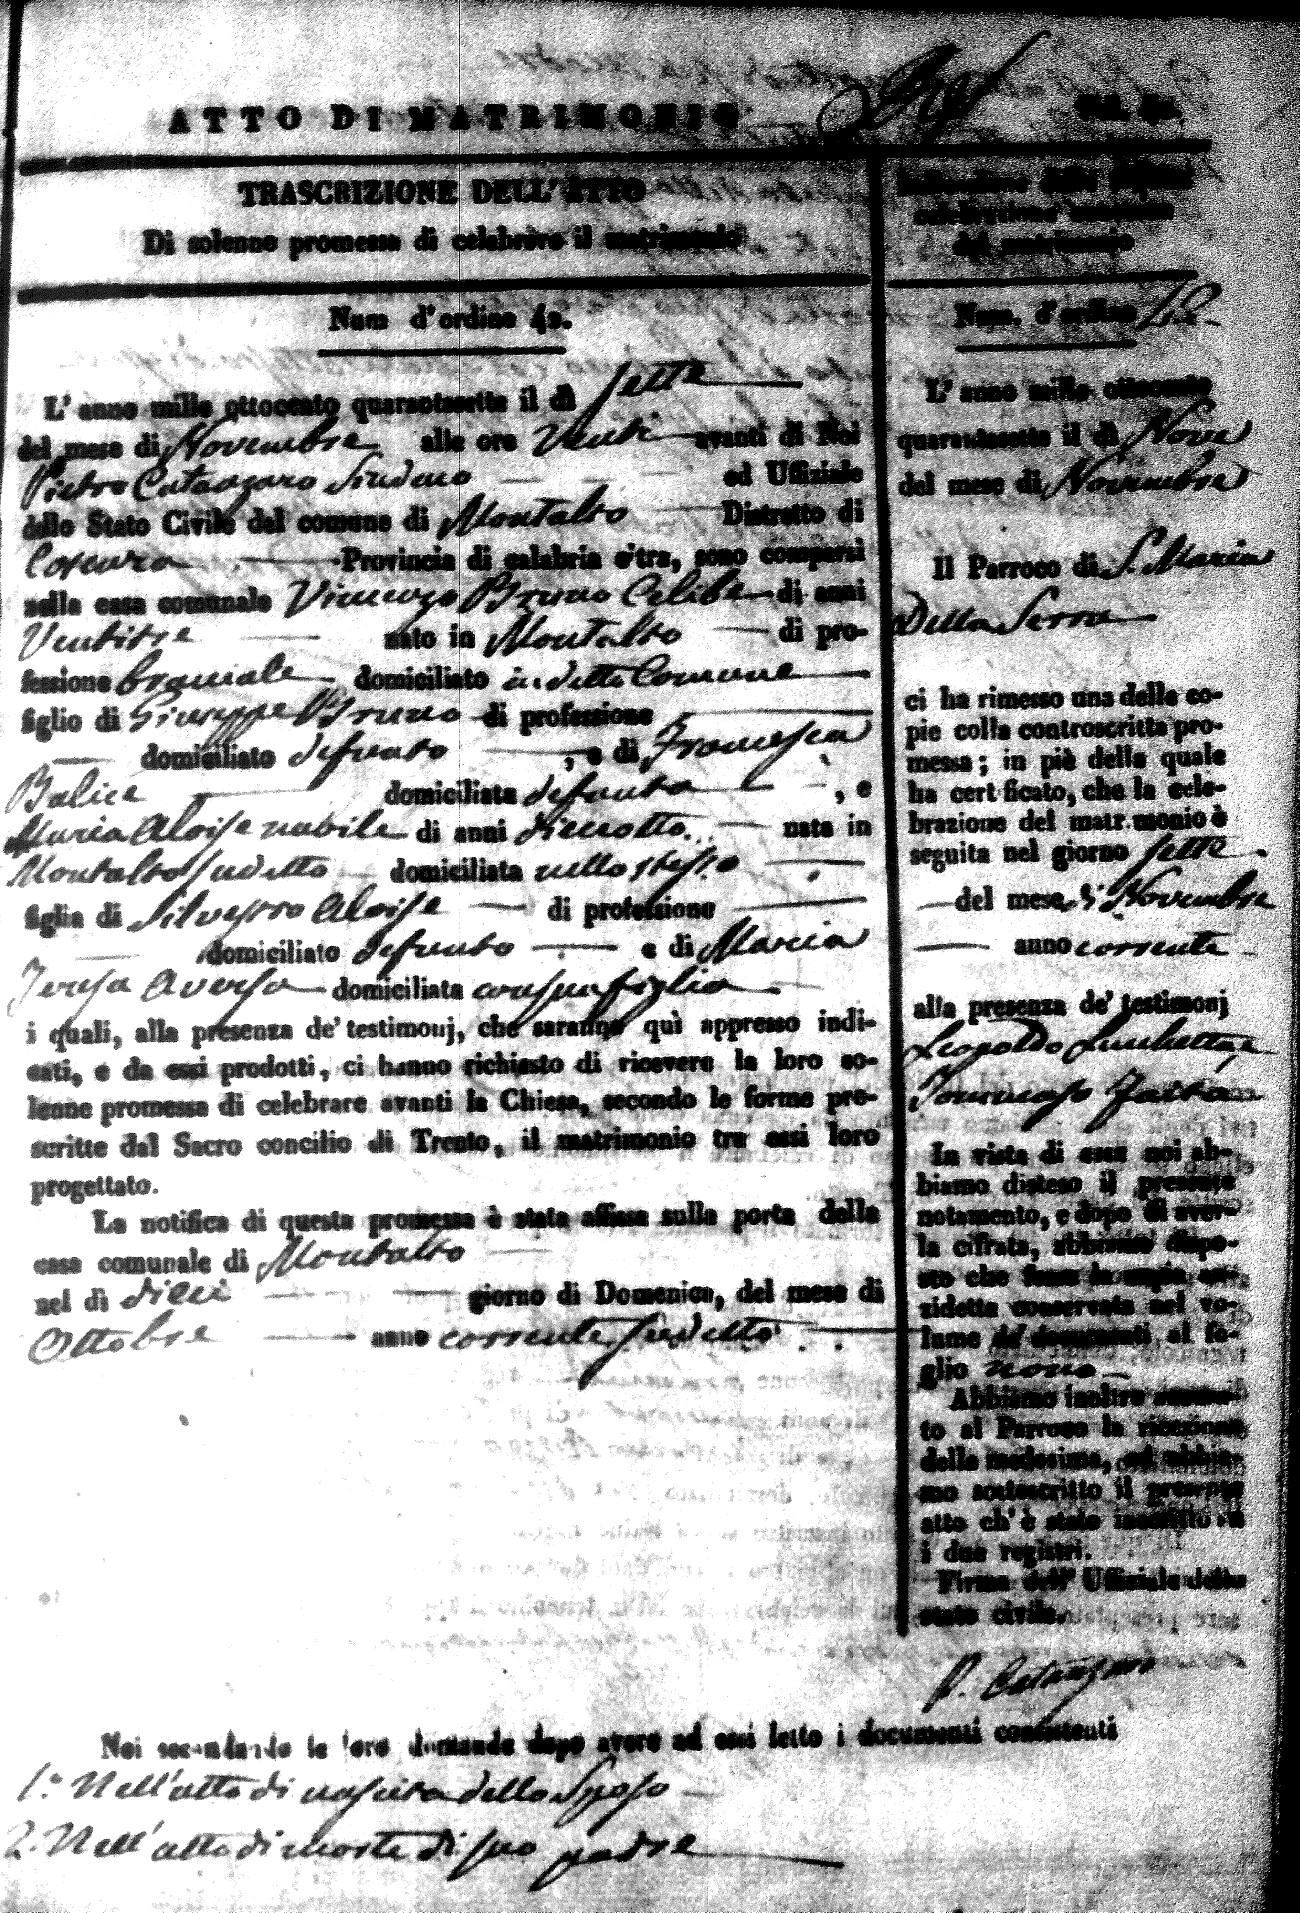 ATTO DI MATRIMONIO
TRASCRIZIONE DELL'ATTO
Di solenne promessa di celebrare il matrimonio
Num d'ordine 42.
L'anno mille ottocento quarantasette il dì sette
del mese di Novembre alle ore Venti avanti di Noi
Pietro Catanzaro Sindaco ed Uffiziale
dello Stato Civile del comune di Montalto Distretto di
Cosenza Provincia di calabria citra, sono comparsi
nella casa comunale Vincenzo Bruno Celibe di anni
Ventitre nato in Montalto di pro-
fessione bracciale domiciliato in detto Comune
figlio di Giuseppe Bruno di professione
domiciliato defunto, e di Francesca
Balice domiciliata defunta, e
Maria Aloise nubile di anni dieciotto nata in
Montalto sudetto domiciliata nello stesso
figlia di Silvestro Aloise di professione
domiciliato defunto e di Maria
Teresa Aversa domiciliata con sua figlia
i quali, alla presenza de' testimonj, che saranno quì appresso indi-
cati, e da essi prodotti, ci hanno richiesto di ricevere la loro so-
lenne promessa di celebrare avanti la Chiesa, secondo le forme pre-
scritte dal Sacro concilio di Trento, il matrimonio tra essi loro
progettato.
La notifica di questa promessa è stata affissa sulla porta della
casa comunale di Montalto
nel dì dieci giorno di Domenica, del mese di
Ottobre anno corrente sudetto
Indicazione della seguita
celebrazione canonica
del matrimonio
Num. d'ordine 42
L'anno mille ottocento
quarantasette il dì Nove
del mese di Novembre
Il Parroco di S. Maria
Della Serra
ci ha rimesso una delle co-
pie colla controscritta pro-
messa; in piè della quale
ha certificato, che la cele-
brazione del matrimonio è
seguita nel giorno sette
del mese di Novembre
anno corrente
alla presenza de' testimonj
Leopoldo Luchetta,
Tommaso
In vista di essa noi ab-
biamo disteso il presente
notamento, e dopo di aver-
la cifrata, abbiamo dispo-
sto che fosse la copia an-
zidetta conservata nel vo-
lume de' documenti al fo-
glio nono
Abbiamo inoltre accusa-
to al Parroco la ricezione
della medesima, ed abbia-
mo sottoscritto il presente
atto ch'è stato inscritto su
i due registri.
Firma dell' Uffiziale dello
stato civile.
P. Catanzaro
Noi secondando le loro domande dopo avere ad essi letto i documenti consistenti
1.° Nell'atto di nascita dello Sposo
2. Nell'atto di morte di suo padre